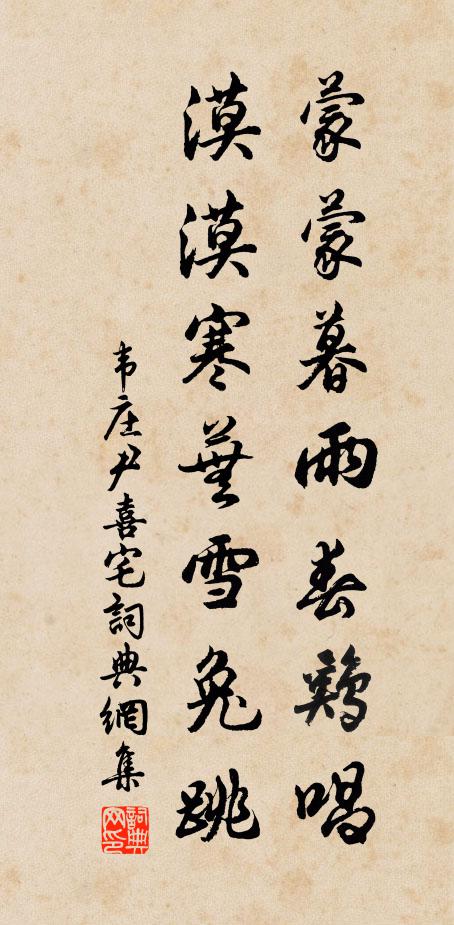 蒙蒙暮雨春鷄唱
漠漠寒蕪雪兔跳
韦庄尹喜宅詞典網集
詞典网印